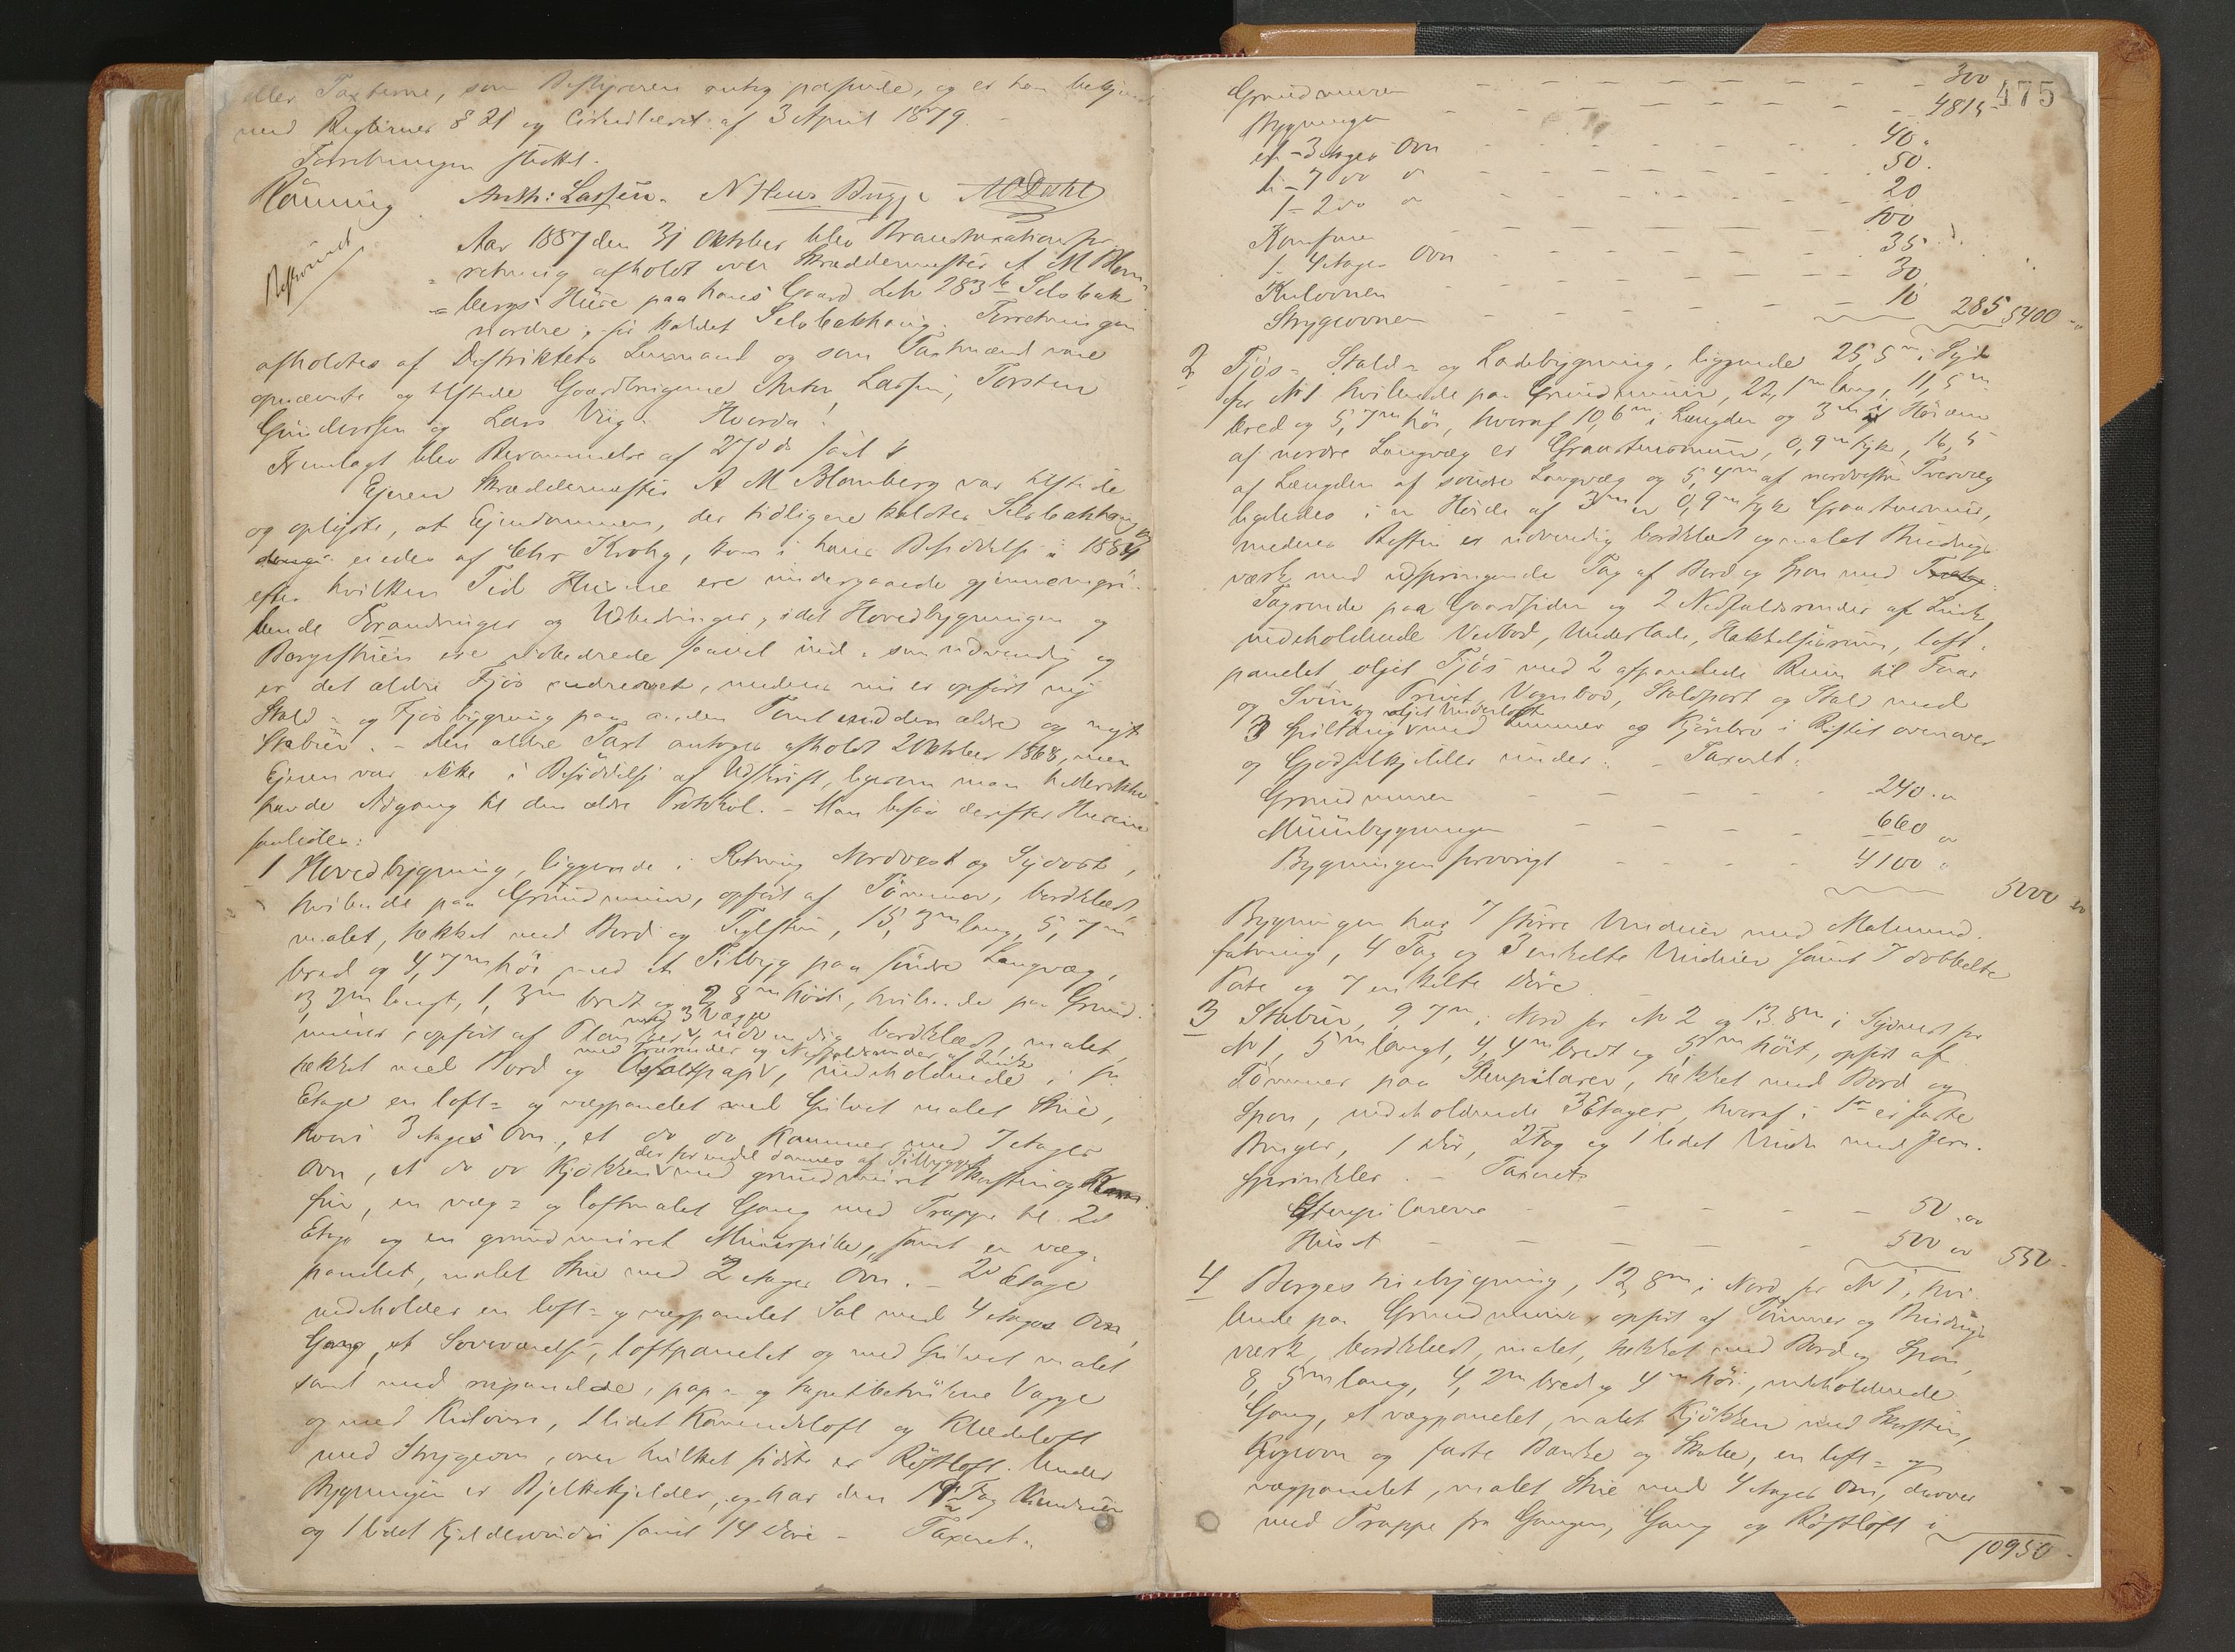 eller Taxterne, som Bestyreren antog passende, og er han bekjendt
med Reglernes § 21 og Cirkulæret af 3 April 1879. –
Forretningen sluttet.
Rönning. Anth: Lassen. N Hens Brygge M Dahl
Beskrevet
Aar 1887 den 31 Oktober blev Brandtaxationsfor-
retning afholdt over Skræddermester A M Blom-
bergs Huse paa hans Gaard Lnr 283 b Selsbak
nordre, för kaldet Selsbakhaug. Forretningen
afholdtes af Distriktets Lensmand og som Taxtmænd vare
opnævnte og tilstede Gaardbrugerne Anton Lassen, Torsten
Gundersen og Lars Viig. Hvorda:
Fremlagt blev Berammelse af 27 ds saal.
Eieren Skræddermester A M Blomberg var tilstede
og oplyste, at Eiendommen, der tidligere kaldtes Selsbakhaug og
eiedes af Chr Krohg, kom i hans Besiddelse i 1884
efter hvilken Tid Husene ere undergaaede gjennemgri-
bende Forandringer og Udbedringer, idet Hovedbygningen og
Borgestuen ere udbedrede saavel ind- som udvendig og
er det ældre Fjös nedrevet, medens nu er opfört ny
Stald- og Fjösbygning paa anden Tomt end den ældre og nyt
Stabur. – Den ældre Taxt antoges afholdt 2 Oktober 1868, men
Eieren var ikke i Besiddelse af Udskrift, ligesom man heller ikke
havde Adgang til den ældre Protokol. – Man besaa derefter Husene
saaledes:
1 Hovedbygning, liggende i Retning Nordvest og Sydost,
hvilende paa Grundmuur, opfört af Tömmer, bordklædt,
malet, tækket med Bord og Teglsten, 15,3 m lang, 5,7 m
bred og 4,7 m höi med et Tilbyg paa söndre Langvæg,
3,7 m langt, 1,3 m bredt og 2,8 m höit, hvilende paa Grund-
muur, opfört af Planker med 3 Vægge, udvendig bordklædt, malet,
tækket med Bord og Asfaltpap, med Trærender og Nedfaldsrender af Zink indeholdende i 1ste
Etage en loft- og vægpanelet med Gulvet malet Stue,
hvori 3 etages Ovn, et do do Kammer med 7 etages
Ovn, et do do Kjökken der for endel dannes af Tilbygget med grundmuret Skorsten og Kom-
fur, en væg- og loftmalet Gang med Trappe til 2d
Etage og en grundmuret Muurpibe, samt en væg-
panelet, malet Stue med 2 etages Ovn. – 2d Etage
indeholder en loft- og vægpanelet Sal med 4 etages Ovn,
Gang, et Soveværelse, loftpanelet og med Gulvet malet
samt med rupanelede, pap- og tapetbetrukne Vægge
og med Kulovn, 1 lidet Kammersloft og Klædeloft
med Strygeovn, over hvilket sidste er Röstloft. Under
Bygningen er Bjelkekjelder, og har den 19 Fag Vinduer
og 1 lidet Kjeldervindu samt 14 Döre – Taxeret:
475
Grundmuren – – – 300
Bygningen – – – 4815
en – 3 etages Ovn – – – 40 "
1 – 7 do do – – – 50 "
1 – 2 do do – – – 20
Komfuren – – – 100
1 – 4 etages Ovn – – – 35
Kulovnen – – – 30
Strygeovnen – – – 10 285 5400 "
2 Fjös- Stald- og Ladebygning, liggende 25,5 m i Syd
for No 1 hvilende paa Grundmuur, 22,1 m lang, 11,5 m
bred og 5,7 m höi, hvoraf 10,6 m i Længden og 3 m i Höiden
af nordre Langvæg er Graastensmuur, 0,9 m tyk, 16,5
af Længden af söndre Langvæg og 5,4 m af nordvestre Tvervæg
ligeledes i en Höide af 3 m er 0,9 m tyk Graastensmuur,
medens Resten er udvendig bordklædt og malet Bindings-
værk med udspringende Tag af Bord og Spon med
Tagrende paa Gaardsiden og 2 Nedfaldsrender af Zink,
indeholdende Vedbod, Underlade, Hakkelsrum, loft-
panelet, oljet Fjös med 2 afpanelede Rum til Faar
og Sviin, Privet, Vognbod, Staldport og Stal med
3 Spiltaug og oljet Underloft med Lemmer og Kjörebro i Röstet ovenover
og Gjödselkjelder under. – Taxeret:
Grundmuren – – – 240 "
Muurbygningen – – – 660 "
Bygningen forövrigt – – – 4100 "
5000 "
Bygningen har 7 större Vinduer med Malmind-
fatning, 4 Fag og 3 enkelte Vinduer samt 7 dobbelte
Porte og 7 enkelte Döre.
3 Stabur, 9,7 m i Nord for No 2 og 13,8 m i Sydvest for
No 1, 5 m langt, 4,4 m bredt og 5 m höit, opfört af
Tömmer paa Stenpilarer, tækket med Bord og
Spon, indeholdende 3 Etager, hvoraf i 1ste er faste
Binger, 1 Dör, 2 Fag og 1 lidet Vindu med Jern-
sprinkler. – Taxeret:
Stenpilarerne – – – 50 "
Huset – – – 500 " 550 –
4 Borgestuebygning, 12,8 m i Nord for No 1, hvi-
lende paa Grundmuur, opfört af Tömmer og Bindings-
værk, bordklædt, malet, tækket med Bord og Spon,
8,5 m lang, 4,2 m bred og 4 m höi, indeholdende
Gang, et vægpanelet, malet Kjökken med Skorsten,
Kogeovn og faste Bænke og Skabe, en loft- og
vægpanelet, malet Stue med 4 etages Ovn, derover
med Trappe fra Gangen, Gang og Röstloft i
10950 –